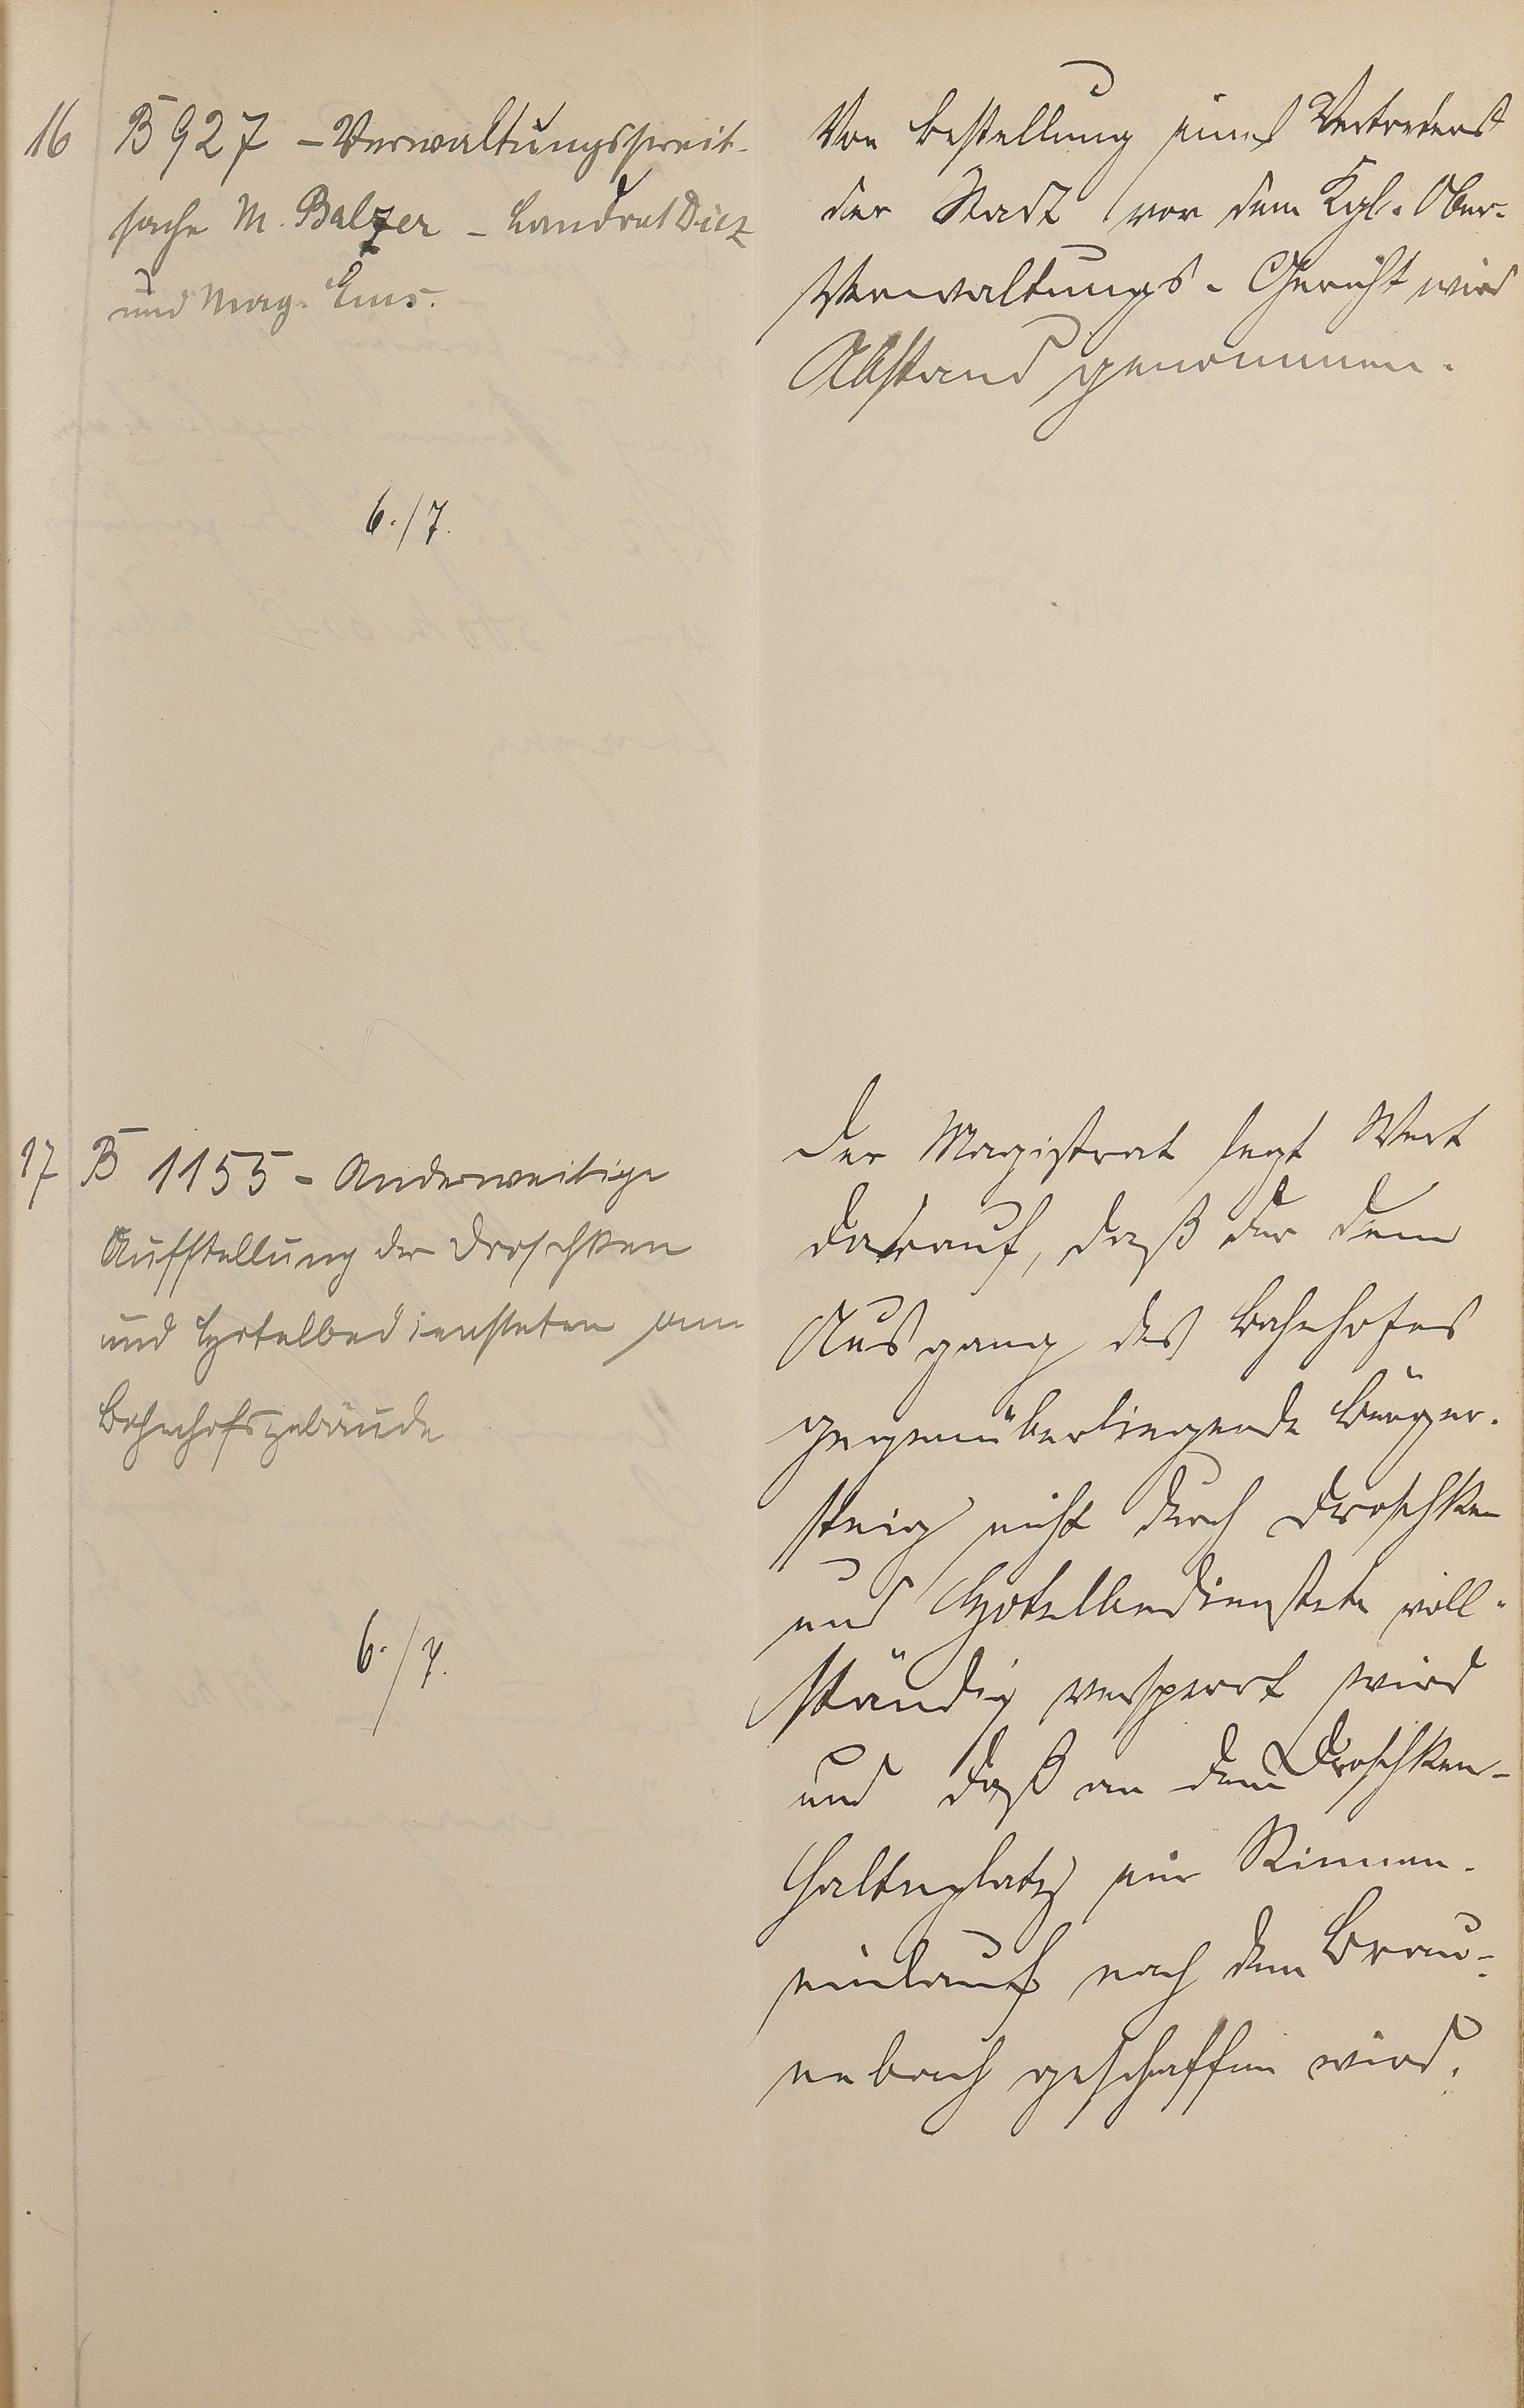 16 B 927 - Verwaltungsstreit-
sache M. Balzer - Landrat Diez
und Mag. Ems.
6./7.
Von Bestellung eines Vertreters
der Stadt vor dem Kgl. Ober-
Verwaltungs-Gericht wird
Abstand genommen.
17 B 1155 - Anderweitige
Aufstellung der Droschken
und Hotelbediensteten am
Bahnhofsgebäude
6./7.
Der Magistrat legt Wert
darauf, daß der dem
Ausgang des Bahnhofes
gegenüberliegende Bürger-
steig nicht durch Droschken
und Hotelbedienstete voll-
ständig versperrt wird
und daß an dem Droschken-
halteplatz ein Rinnen-
einlauf nach dem Brau-
nebach geschaffen wird.